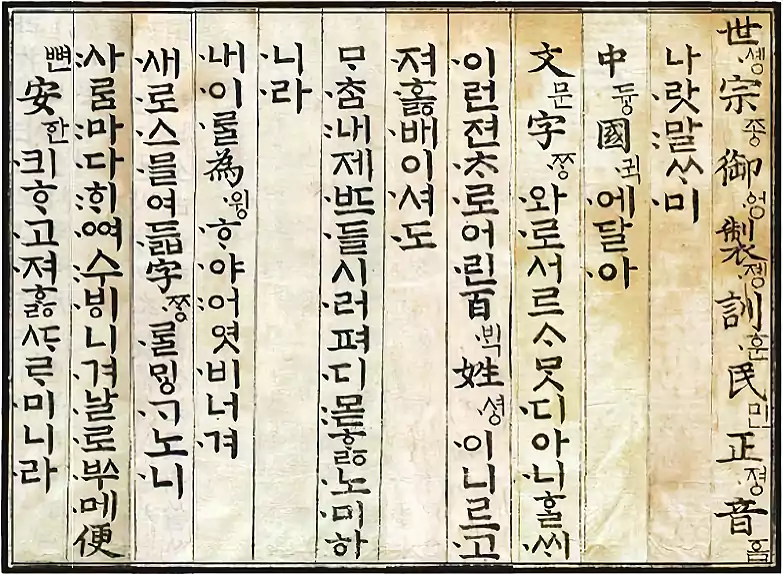 世솅宗조ᇰ御ᅌᅥᆼ製졩訓훈民민正져ᇰ音ᅙᅳᆷ
나랏말ᄊᆞ미
中듀ᇰ國귁에달아
文문字ᄍᆞᆼ와로서르ᄉᆞᄆᆞᆺ디아니ᄒᆞᆯᄊᆡ
이런젼ᄎᆞ로어린百ᄇᆡᆨ姓셔ᇰ이니르고
져호ᇙ배이셔도
ᄆᆞᄎᆞᆷ내제ᄠᅳ들시러펴디몯ᄒᆞᇙ노미하
니라
내이ᄅᆞᆯ為윙ᄒᆞ야어엿비너겨
새로스믈여듧字ᄍᆞᆼᄅᆞᆯᄆᆡᇰᄀᆞ노니
사ᄅᆞᆷ마다ᄒᆡᅇᅧ수ᄫᅵ니겨날로ᄡᅮ메便
뼌安ᅙᅡᆫ킈ᄒᆞ고져ᄒᆞᇙᄯᆞᄅᆞ미니라